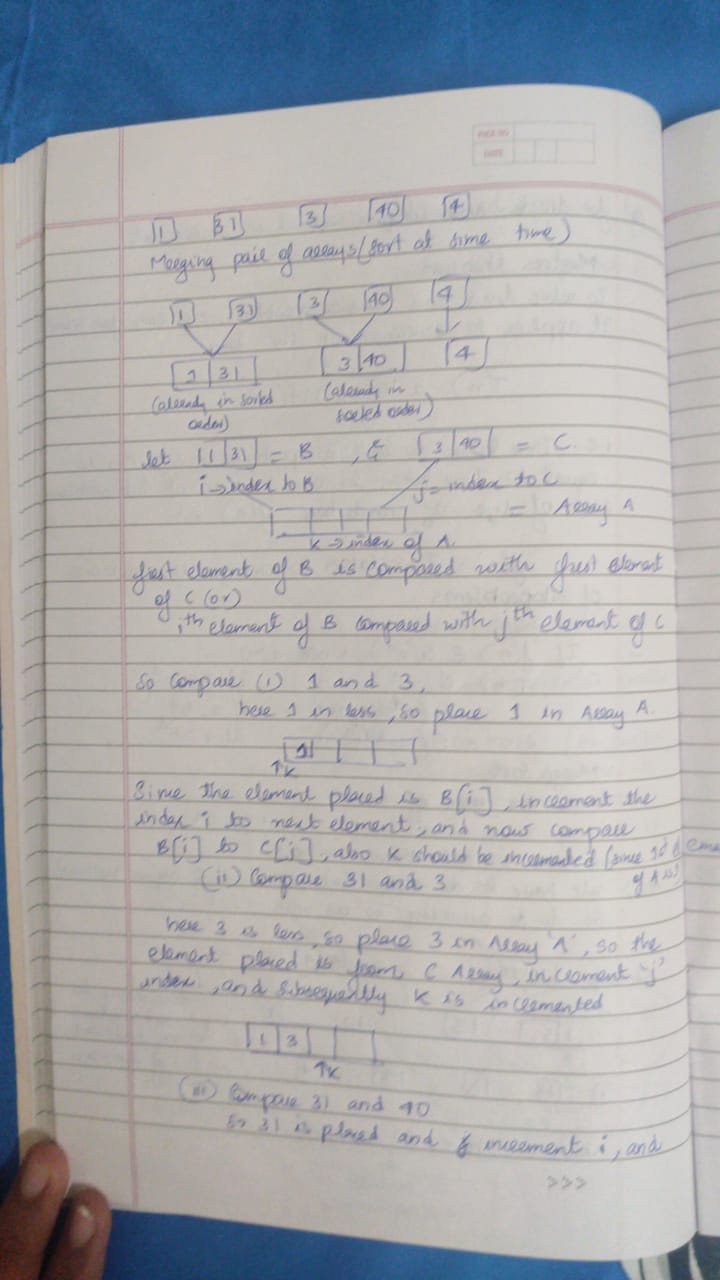 PAGE NO
DATE
1 31 3 40 4
Merging pair of arrays (sort at same time)
1 31 3 40 4
1 31 3 40 4
(already in sorted order)
(already in sorted order)
let 1 31 = B , & 3 40 = C
i → index to B
j = index to C
= Array A
k → index of A.
first element of B is compared with first element
of C (or)
ith element of B compared with jth element of C
So Compare (i) 1 and 3,
here 1 in less, so place 1 in Array A.
1
↑k
Since the element placed is B[i], increment the
index i to next element, and now compare
B[i] to C[j], also k should be incremented (since 1st
of A
(ii) Compare 31 and 3
here 3 is less, so place 3 in Array 'A', so the
element placed is from C Array, increment 'j'
index, and subsequently k is incremented
1 3
↑k
(iii) Compare 31 and 40
So 31 is placed and increment i, and
>>>